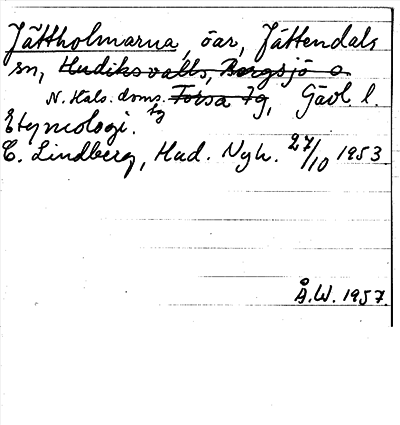 Jättholmarna, öar, Jättendals
sn, Hudiksvalls, Bergsjö o
N. Häls. doms. Forsa tg, Gävl. l.
tg
Etymologi.
E. Lindberg, Hud. Nyh. 27/10 1953
Å.W. 1957.